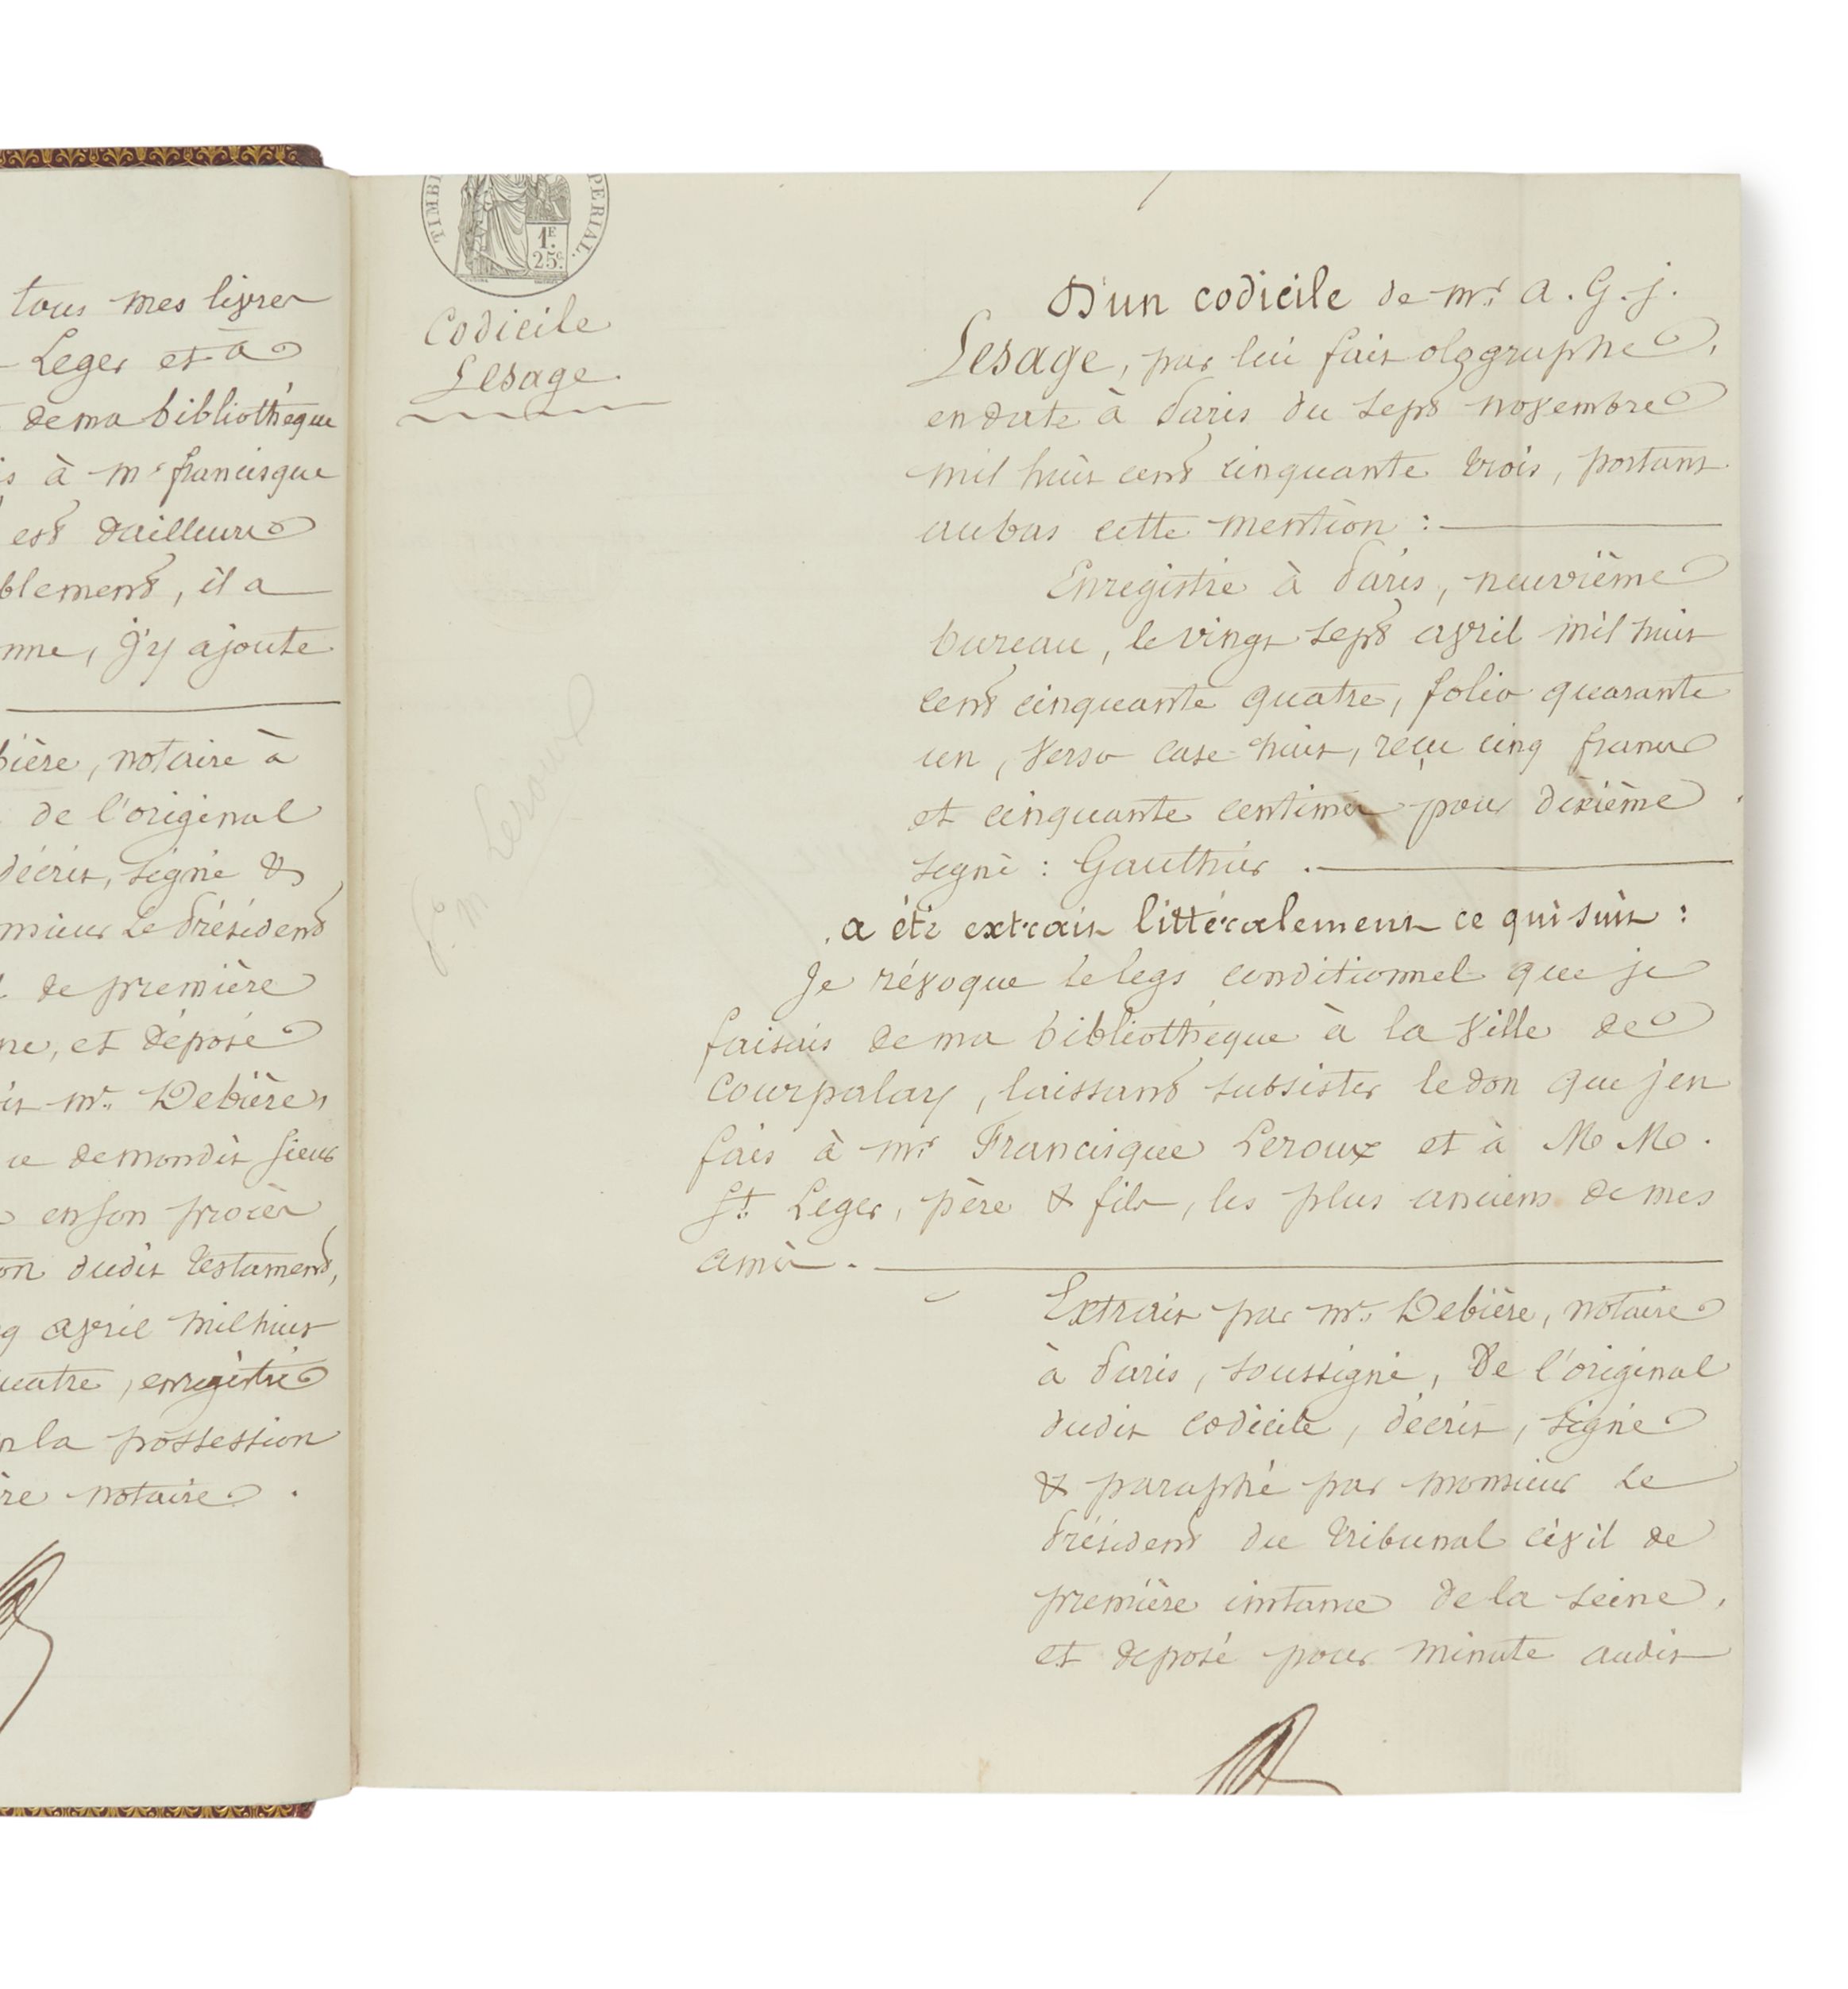 tous mes livres
Leger et à
de ma bibliothèque
à Mr francisque
est d'ailleurs
blement, il a
nne, j'y ajoute
bière, notaire à
de l'original
décrit, signé &
nsieur Le Président
de première
ne, et déposé
it Mr. Debière,
ce demondit sieur
en son procès
on dudit testament,
q avril mil huit
uatre, enregistré
la possession
re notaire.
TIMBR PERIAL.
1F.
25c.
Codicile
Lesage.
Fo. M Leroux
D'un codicile de Mr. A. G. J.
Lesage, par lui fait olographe,
en date à Paris du sept novembre
mil huit cent cinquante trois, portant
au bas cette mention :
Enregistré à Paris, neuvième
bureau, le vingt sept avril mil huit
cent cinquante quatre, folio quarante
un, verso case huit, reçu cinq francs
et cinquante centimes pour dixième
signé : Gauthier.
a été extrait littéralement ce qui suit :
Je révoque le legs conditionnel que je
faisais de ma bibliothèque à la Ville de
Courpalay, laissant subsister le don que j'en
fais à Mr Francisque Leroux et à M M.
St. Leger, père & fils, les plus anciens de mes
amis.
Extrait par Me. Debière, notaire
à Paris, soussigné, De l'original
dudit codicile, décrit, signé
& paraphé par monsieur Le
Président du Tribunal civil de
première instance de la Seine,
et déposé pour minute audit